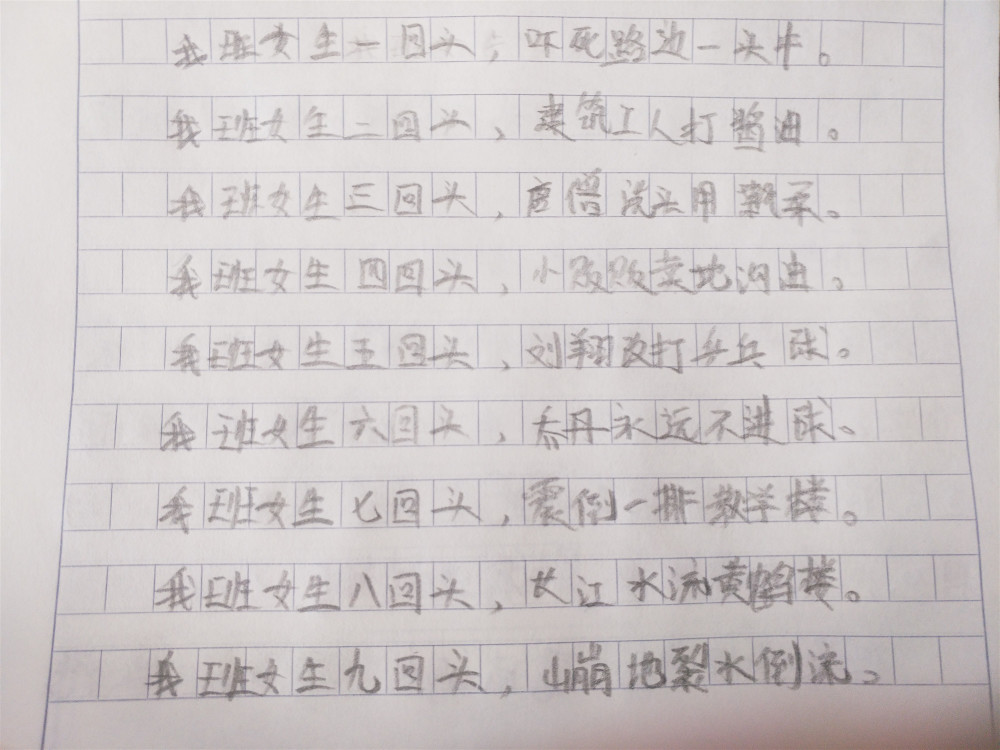 我班女生一回头，吓死路边一头牛。
我班女生二回头，建筑工人打酱油。
我班女生三回头，唐僧洗头用飘柔。
我班女生四回头，小贩贩卖地沟油。
我班女生五回头，刘翔改打乒乓球。
我班女生六回头，乔丹永远不进球。
我班女生七回头，震倒一排教学楼。
我班女生八回头，长江水流黄鹤楼。
我班女生九回头，山崩地裂水倒流。